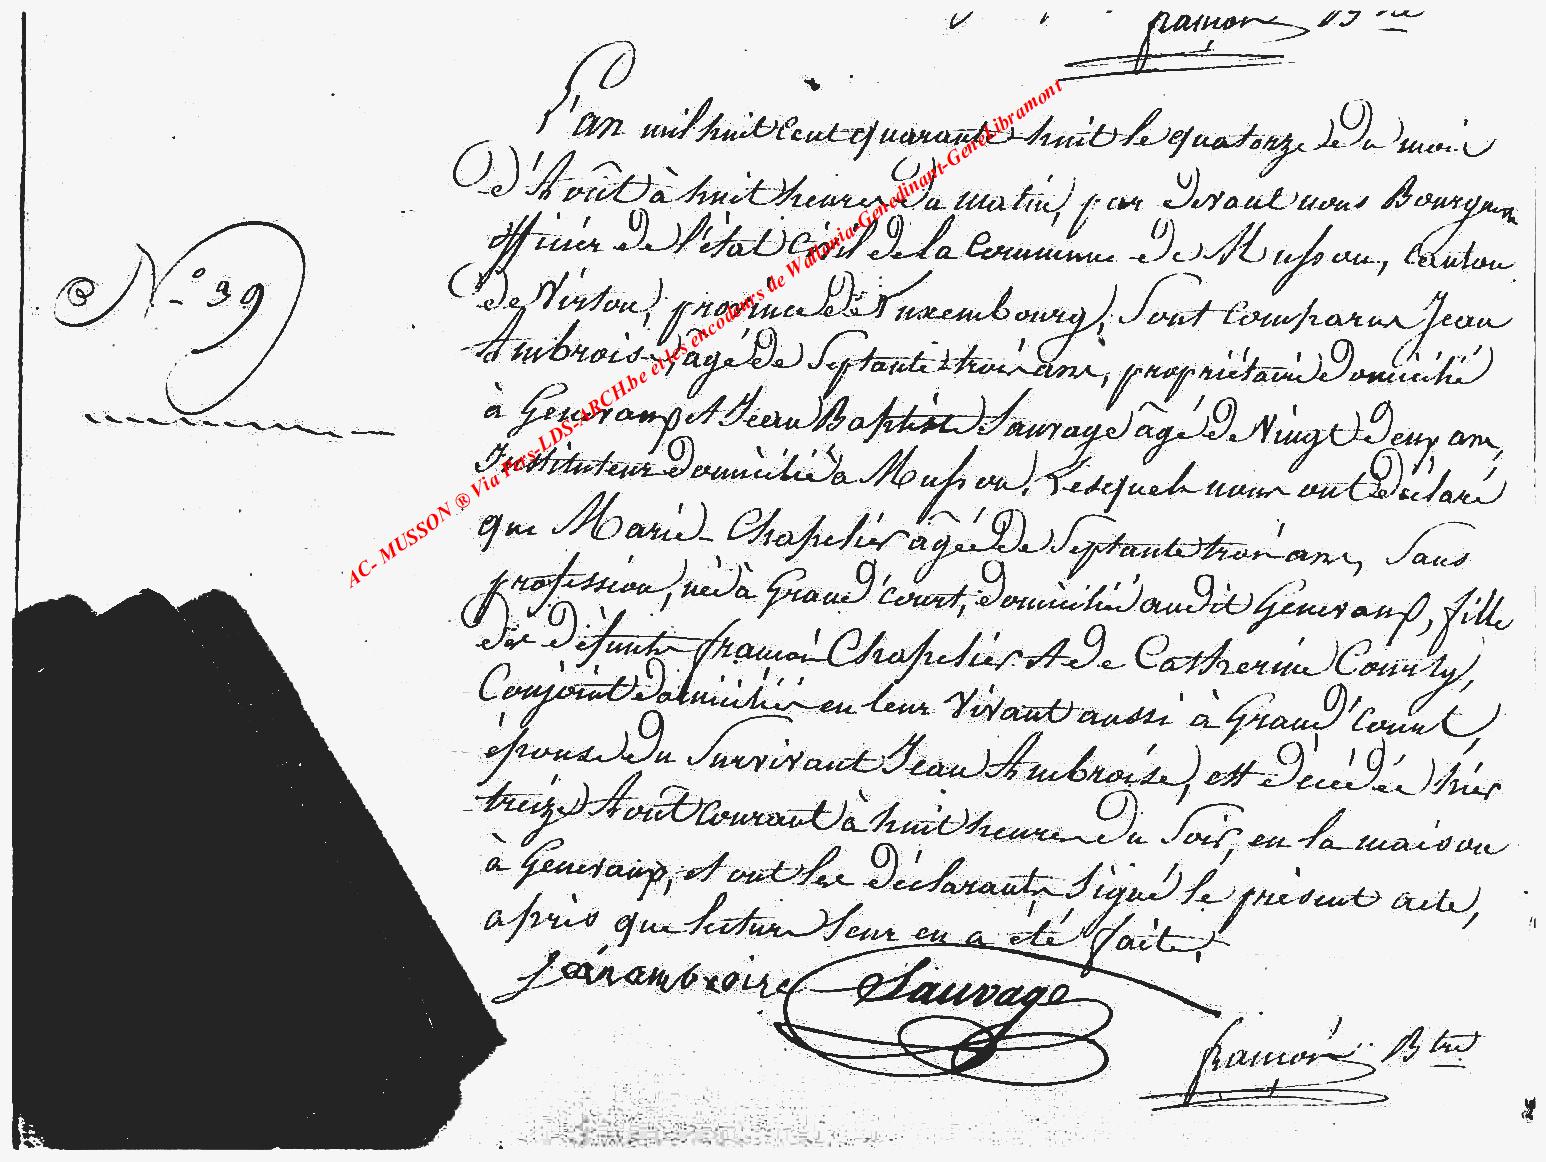 françois Btre
L'an mil huit cent quarante-huit le quatorze du mois
d'Août à huit heures du matin, par devant nous Bourgmes
officier de l'état civil de la Commune de Musson, canton
de Virton, province de Luxembourg, Sont comparus Jean
Ambroise, âgé de Septante-trois ans, propriétaire domicilié
à Genevaux et Jean Baptiste Sauvage âgé de Vingt deux ans,
Instituteur domicilié à Musson, Lesquels nous ont déclaré
que Marie-Chapelier âgée de Septante trois ans, Sans
profession, née à Grand'court, domiciliée audit Genevaux, fille
des défunts françois Chapelier et de Catherine
Conjoint domiciliés en leur Vivant aussi à Grand'court,
épouse du Survivant Jean Ambroise, est décédée hier
treize Août courant à huit heures du Soir, en la maison
à Genevaux, et ont les déclarants Signé le présent acte,
après que lecture leur en a été faite.
Jean ambroise Sauvage
françois Btre
N° 39
AC- MUSSON ® Via Pros-LDS-ARCH.be et les encodeurs de Wallonia-Genedinant-GeneLibramont